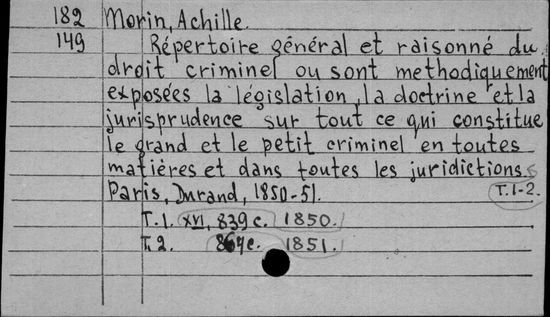 182 Morin, Achille.
149 Répertoire général et raisonné du
droit criminel ou sont methodiquement
exposées la législation, la doctrine et la
jurisprudence sur tout ce qui constitue
le grand et le petit criminel en toutes
matières et dans toutes les juridictions
Paris, Durand, 1850-51. T.1-2.
T.1. XVI, 839 c. 1850.
T.2. 864 c. 1851.